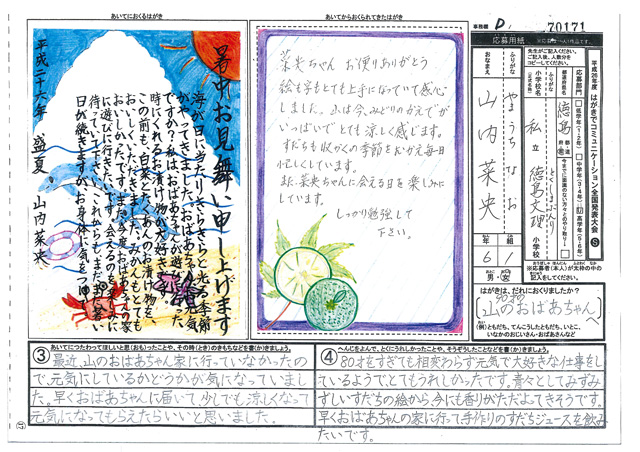 あいてにおくるはがき
暑中お見舞い申し上げます
海が日に当たりきらきらと光る季節が
やってきました。おばあちゃん、元気
ですか？私は、おばあちゃんが遊びに行った
時にくれるお漬け物が大好きです。
この前も、白菜とたくあんのお漬け物を
おいしくいただきました。みかんもとても
おいしかったです。また今度おばあちゃんの家
に遊びに行きたいです。会えるのを楽しみに
待っていて下さい。これからもまだまだ暑い
日が続きますが、お身体に気をつけて
平成二十六年 盛夏 山内菜央
あいてからおくられてきたはがき
菜央ちゃん お便りありがとう
絵も字もとても上手になっていて感心
しました。山は今、みどりのかえでが
いっぱいでとても涼しく感じます。
すだちも収かくの季節をむかえ毎日
忙しくしています。
また菜央ちゃんに会える日を楽しみに
しています。
しっかり勉強して
下さい。
事務欄 D 70171
平成26年度 はがきでコミュニケーション全国発表大会 S
応募用紙
応募部門
低学年(1・2年) 中学年(3・4年) 高学年(5・6年)
都道府県名 徳島
小学校名 私立 徳島文理 小学校
とくしまぶんり
ふりがな やまうち なお
おなまえ 山内 菜央
年 6 組 1
男・女
※応募者(本人)が太枠の中の
記入をしてください。
はがきは、だれにおくりましたか?
山のおばあちゃんへ
(例)ともだち、てんこうしたともだち、いとこ、
いなかのおじいさん・おばあさんなど
③ あいてにつたわってほしいと思(おも)ったことや、その時(とき)のきもちなどを書(か)きましょう。
最近、山のおばあちゃん家に行っていなかったの
で、元気にしているかどうかが気になっていまし
た。早くおばあちゃんに届いて、少しでも涼しくなって
元気になってもらえたらいいと思いました。
④ へんじをよんで、とくにうれしかったことや、そうぞうしたことなどを書(か)きましょう。
80才をすぎても相変わらず元気で大好きな仕事をし
ているようで、とてもうれしかったです。青々としてみずみ
ずしいすだちの絵から、今にも香りがただよってきそうです。
早くおばあちゃんの家に行って手作りのすだちジュースを飲み
たいです。